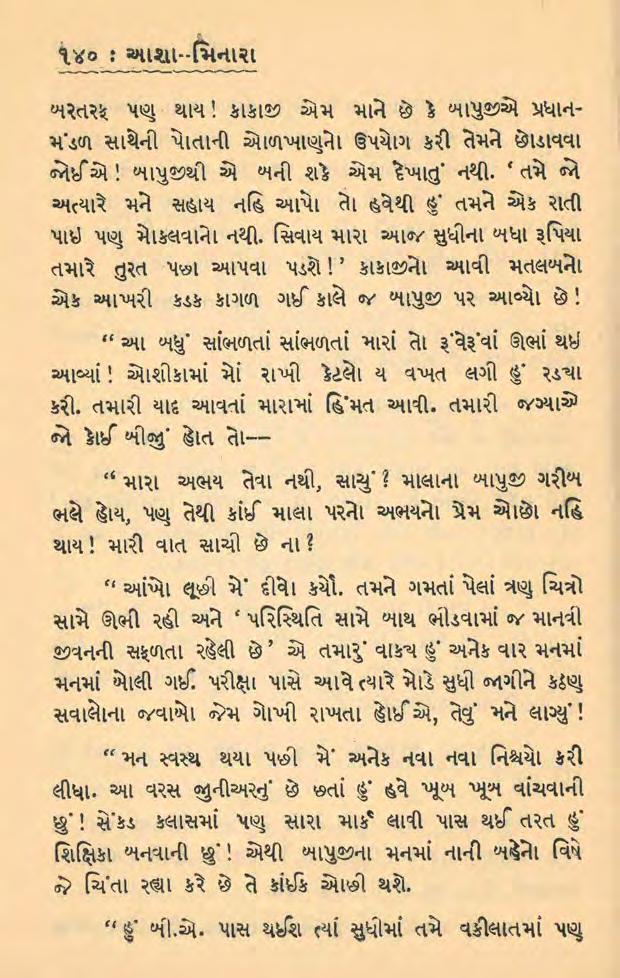 ૧૪૦ : આશા--મિનારા
બરતરફ પણ થાય! કાકાજી એમ માને છે કે બાપુજીએ પ્રધાન-
મંડળ સાથેની પોતાની ઓળખાણનો ઉપયોગ કરી તેમને છોડાવવા
જોઈએ! બાપુજીથી એ બની શકે એમ દેખાતું નથી. ‘ તમે જો
અત્યારે મને સહાય નહિ આપો તો હવેથી હું તમને એક રાતી
પાઇ પણ મોકલવાનો નથી. સિવાય મારા આજ સુધીના બધા રૂપિયા
તમારે તુરત પછા આપવા પડશે!’ કાકાજીનો આવી મતલબનો
એક આખરી કડક કાગળ ગઈ કાલે જ બાપુજી પર આવ્યો છે!
“ આ બધું સાંભળતાં સાંભળતાં મારાં તો રૂંવેરૂંવાં ઊભાં થઇ
આવ્યાં! ઓશીકામાં મોં રાખી કેટલો ય વખત લગી હું રડ્યા
કરી. તમારી યાદ આવતાં મારામાં હિંમત આવી. તમારી જગ્યાએ
જો કોઈ બીજું હોત તો—
“ મારા અભય તેવા નથી, સાચું? માલાના બાપુજી ગરીબ
ભલે હોય, પણ તેથી કાંઈ માલા પરનો અભયનો પ્રેમ ઓછો નહિ
થાય! મારી વાત સાચી છે ના?
“ આંખો લૂછી મેં દીવો કર્યો. તમને ગમતાં પેલાં ત્રણ ચિત્રો
સામે ઊભી રહી અને ‘ પરિસ્થિતિ સામે બાથ ભીડવામાં જ માનવી
જીવનની સફળતા રહેલી છે’ એ તમારું વાક્ય હું અનેક વાર મનમાં
મનમાં બોલી ગઈ. પરીક્ષા પાસે આવે ત્યારે મોડે સુધી જાગીને કઠણ
સવાલોના જવાબો જેમ ગોખી રાખતા હોઈએ, તેવું મને લાગ્યું!
“ મન સ્વસ્થ થયા પછી મેં અનેક નવા નવા નિશ્ચયો કરી
લીધા. આ વરસ જુનીઅરનું છે છતાં હું હવે ખૂબ ખૂબ વાંચવાની
છું! સેંકડ કલાસમાં પણ સારા માર્ક લાવી પાસ થઈ તરત હું
શિક્ષિકા બનવાની છું! એથી બાપુજીના મનમાં નાની બહેનો વિષે
જે ચિંતા રહ્યા કરે છે તે કાંઈક ઓછી થશે.
“ હું બી.એ. પાસ થઈશ ત્યાં સુધીમાં તમે વકીલાતમાં પણ